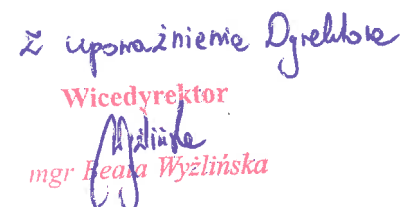 Z upoważnienia Dyrektora
Wicedyrektor
Wyżlińska
mgr Beata Wyżlińska